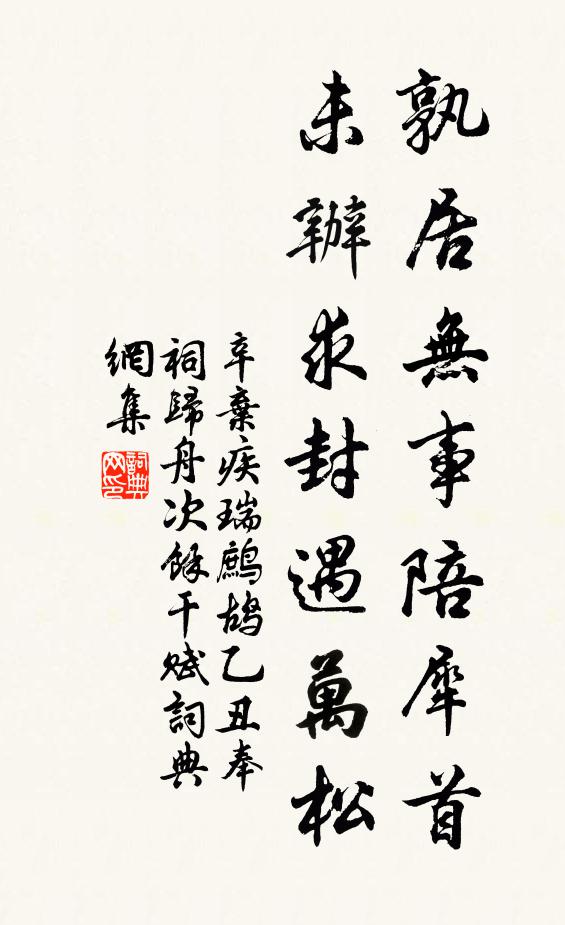 孰居無事陪犀首
未辦求封遇萬松
辛棄疾瑞鷓鴣乙丑奉
祠歸舟次餘干賦詞典
網集
詞典
网印